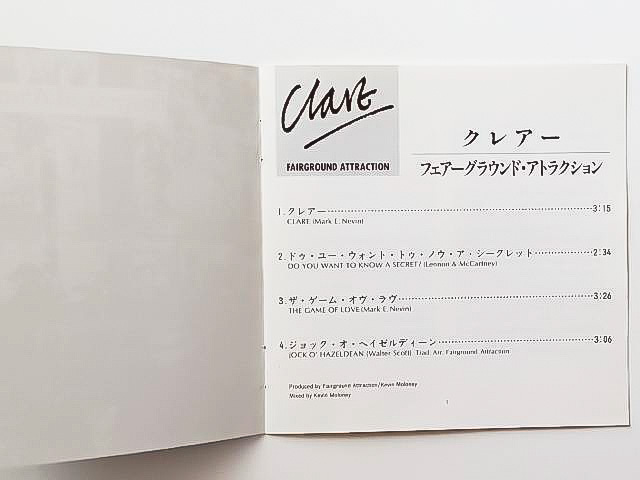 Clare
FAIRGROUND ATTRACTION
クレアー
フェアーグラウンド・アトラクション
1. クレアー……………………………………3:15
CLARE (Mark E. Nevin)
2. ドゥ・ユー・ウォント・トゥ・ノウ・ア・シークレット……………2:34
DO YOU WANT TO KNOW A SECRET? (Lennon & McCartney)
3. ザ・ゲーム・オヴ・ラヴ……………………………………3:26
THE GAME OF LOVE (Mark E. Nevin)
4. ジョック・オ・ヘイゼルディーン……………………………………3:06
JOCK O' HAZELDEAN (Walter Scott) Trad. Arr. Fairground Attraction
Produced by Fairground Attraction/Kevin Moloney
Mixed by Kevin Moloney
1